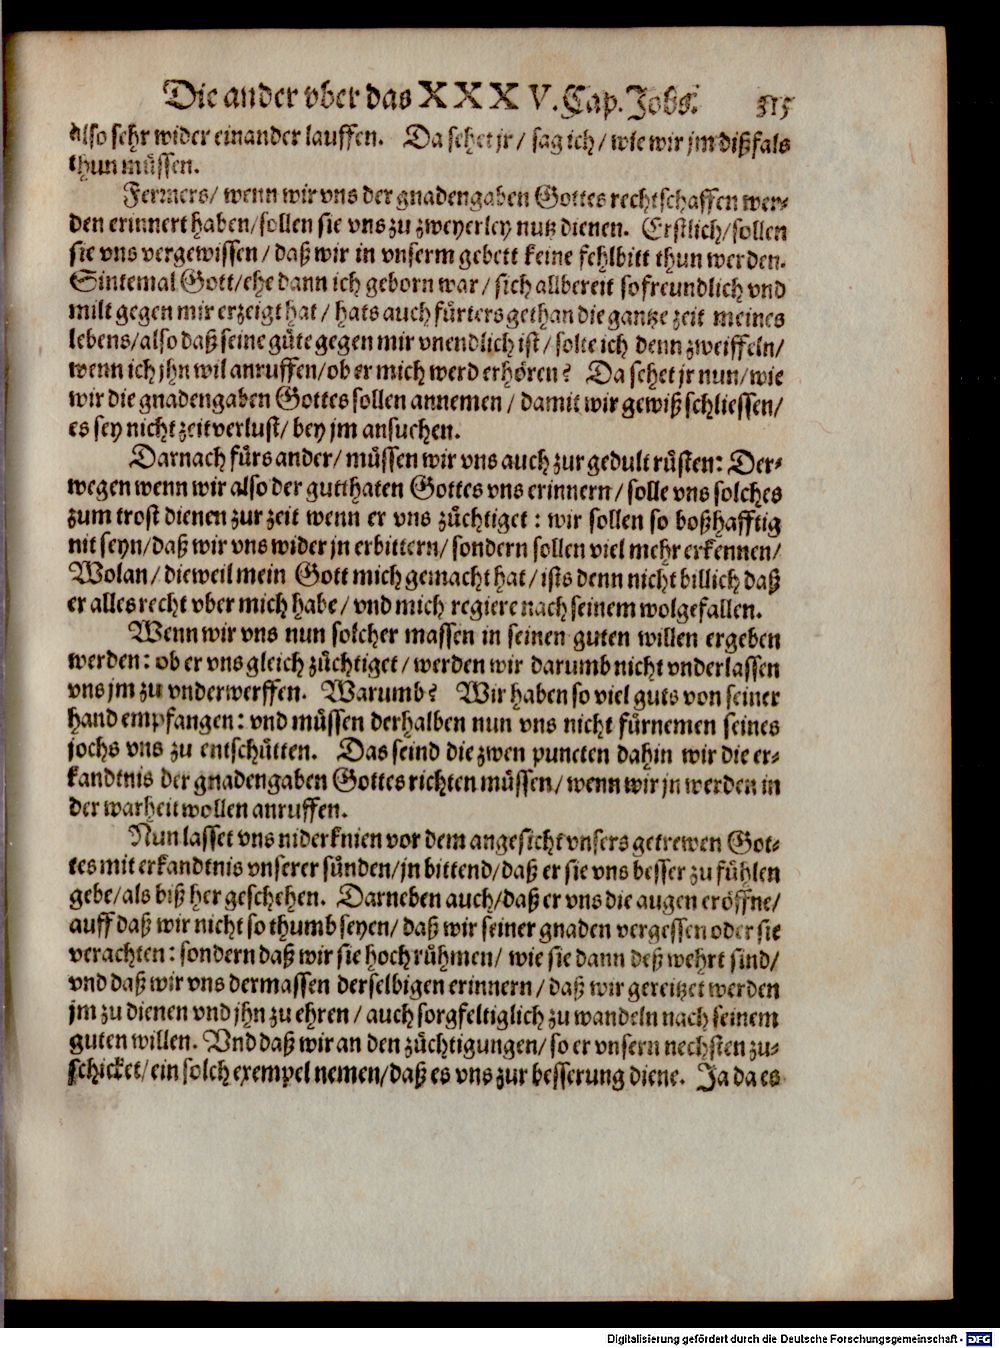 Die ander vber das XXXV. Cap. Jobs. 315
also sehr wider einander lauffen. Da sehet jr / sag ich / wie wir jm dißfals
thun müssen.
Ferrners / wenn wir vns der gnadengaben Gottes rechtschaffen wer-
den erinnert haben / sollen sie vns zu zweyerley nutz dienen. Erstlich / sollen
sie vns vergewissen / daß wir in vnserm gebett keine fehlbitt thun werden.
Sintemal Gott / ehe dann ich geborn war / sich allbereit so freundlich vnd
milt gegen mir erzeigt hat / hats auch fürters gethan die gantze zeit meines
lebens / also daß seine güte gegen mir vnendlich ist / solte ich denn zweiffeln /
wenn ich jhn wil anruffen / ob er mich werd erhören? Da sehet jr nun / wie
wir die gnadengaben Gottes sollen annemen / damit wir gewiß schliessen /
es sey nicht zeitverlust / bey jm ansuchen.
Darnach fürs ander / müssen wir vns auch zur gedult rüsten: Der-
wegen wenn wir also der gutthaten Gottes vns erinnern / solle vns solches
zum trost dienen zur zeit wenn er vns züchtiget: wir sollen so boßhafftig
nit seyn / daß wir vns wider jn erbittern / sondern sollen viel mehr erkennen /
Wolan / dieweil mein Gott mich gemacht hat / ists denn nicht billich daß
er alles recht vber mich habe / vnd mich regiere nach seinem wolgefallen.
Wenn wir vns nun solcher massen in seinen guten willen ergeben
werden: ob er vns gleich züchtiget / werden wir darumb nicht vnderlassen
vns jm zu vnderwerffen. Warumb? Wir haben so viel guts von seiner
hand empfangen: vnd müssen derhalben nun vns nicht fürnemen seines
jochs vns zu entschütten. Das seind die zwen puncten dahin wir die er-
kandtnis der gnadengaben Gottes richten müssen / wenn wir jn werden in
der warheit wollen anruffen.
Nun lasset vns niderknien vor dem angesicht vnsers getrewen Got-
tes mit erkandtnis vnserer sünden / jn bittend / daß er sie vns besser zu fühlen
gebe / als biß her geschehen. Darneben auch / daß er vns die augen eröffne /
auff daß wir nicht so thumb seyen / daß wir seiner gnaden vergessen oder sie
verachten: sondern daß wir sie hoch rühmen / wie sie dann deß wehrt sind /
vnd daß wir vns dermassen derselbigen erinnern / daß wir gereitzet werden
jm zu dienen vnd jhn zu ehren / auch sorgfeltiglich zu wandeln nach seinem
guten willen. Vnd daß wir an den züchtigungen / so er vnsern nechsten zu-
schicket / ein solch exempel nemen / daß es vns zur besserung diene. Ja da es
Digitalisierung gefördert durch die Deutsche Forschungsgemeinschaft - DFG